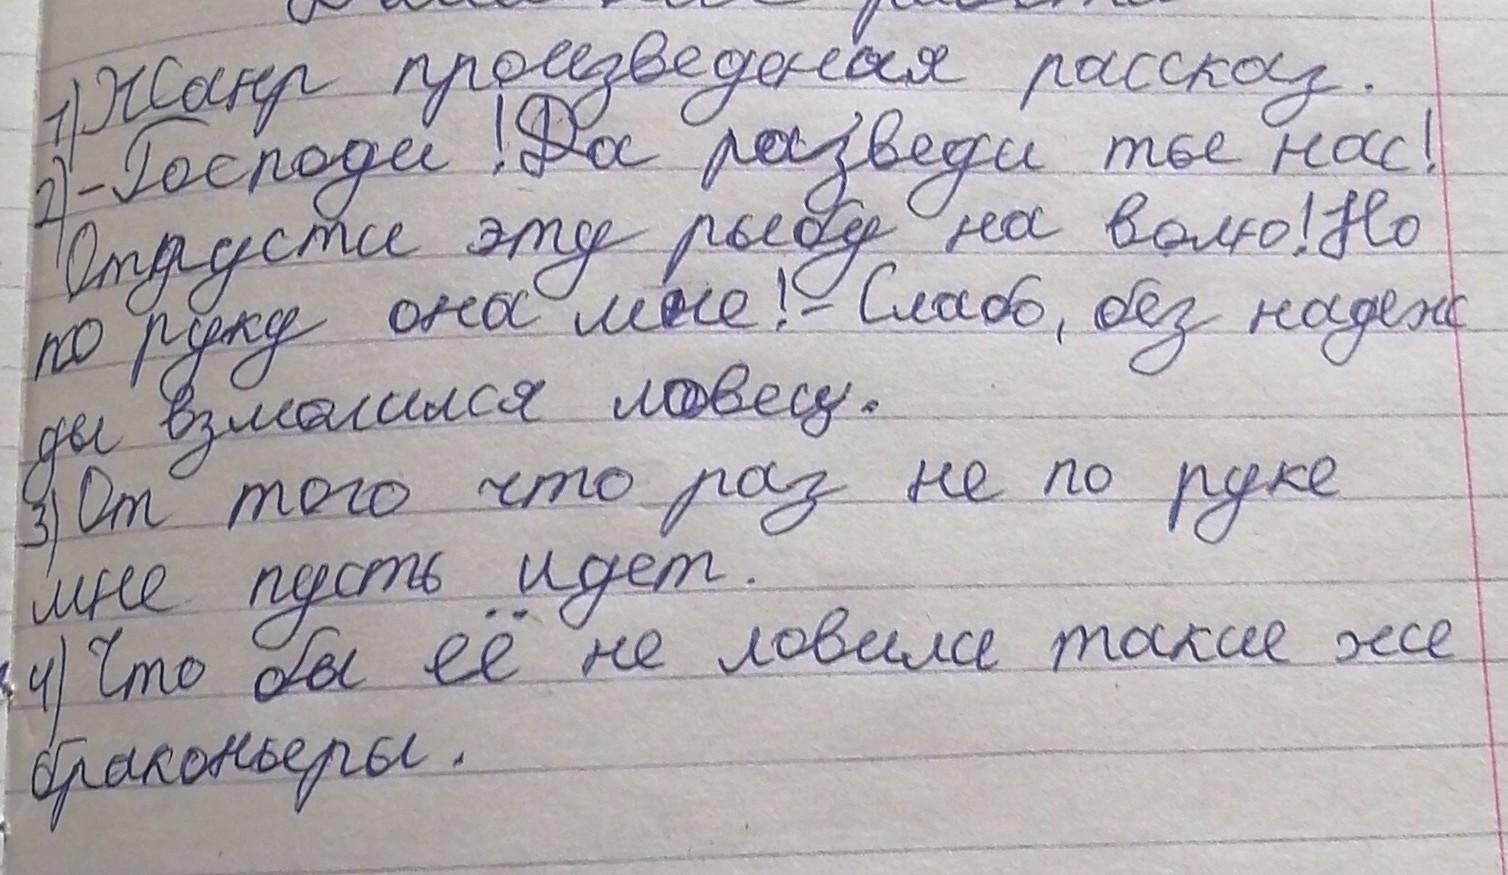 1) Жанр произведения рассказ.
2) – Господи! Да разведи ты нас!
Отпусти эту рыбу на волю! Но
по руку она мне! – Слабо, без надеж
ды взмолился ловец.
3) От того что раз не по руке
мне пусть идет.
4) Что бы её не ловили такие же
браконьеры.